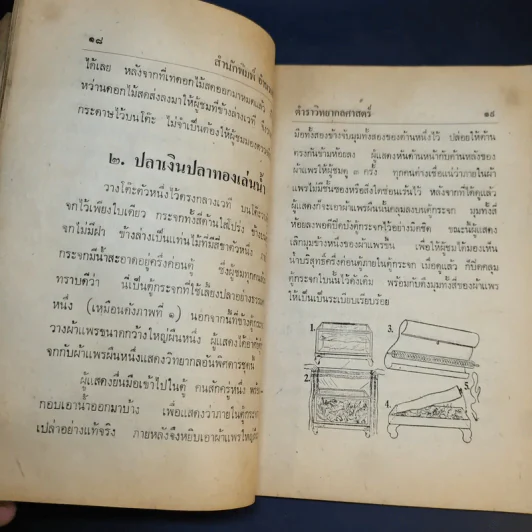 ๑๘
สำนักพิมพ์
ได้เลย หลังจากที่เทดอกไม้สดออกมาหมดแล้ว
หว่านดอกไม้สดส่งลงมาให้ผู้ชมที่ข้างล่างเวที
กระดาษไว้บนโต๊ะ ไม่จำเป็นต้องให้ผู้ชมมองตรวจ
๒. ปลาเงินปลาทองเล่นน้ำ
วางโต๊ะตัวหนึ่งไว้ตรงกลางเวที บนโต๊ะวาง
จกไว้เพียงใบเดียว กระจกทั้งสี่ด้านใสโปร่ง ข้างบน
จกไม่มีฝา ข้างล่างเป็นแท่นไม้ที่มีสี่ขาตัวหนึ่ง
กระจกมีน้ำสะอาดอยู่ครึ่งค่อนตู้ ซึ่งผู้ชมทุกคน
ทราบดีว่า นี่เป็นตู้กระจกที่ใช้เลี้ยงปลาอย่างธรรมดา
หนึ่ง (เหมือนดังภาพที่ ๑) นอกจากนี้ที่ข้างตู้กระจก
วางผ้าแพรขนาดกว้างใหญ่ผืนหนึ่ง ผู้แสดงได้อาศัยตู้
จกกับผ้าแพรผืนหนึ่งแสดงวิทยากลอันพิศดารชุดนี้
ผู้แสดงยื่นมือเข้าไปในตู้ คนสักครู่หนึ่ง พร้อม
กอบเอาน้ำออกมาบ้าง เพื่อแสดงว่าภายในตู้กระจก
เปล่าอย่างแท้จริง ภายหลังจึงหยิบเอาผ้าแพรใหญ่ผืน
ตำราวิทยากลศาสตร์
๑๙
มือทั้งสองข้างจับมุมทั้งสองของด้านหนึ่งไว้ ปล่อยให้ด้าน
ตรงกันข้ามห้อยลง ผู้แสดงหันด้านหน้ากับด้านหลังของ
ผ้าแพรให้ผู้ชมดู ๓ ครั้ง ทุกคนต่างเชื่อแน่ว่าภายในผ้า
แพรไม่มีชั้นซองหรือสิ่งใดซ่อนเร้นไว้ หลังจากที่ได้ดูแล้ว
ผู้แสดงก็จะเอาผ้าแพรผืนนั้นคลุมลงบนตู้กระจก มุมทั้งสี่
ห้อยลงพอดีปิดบังตู้กระจกไว้อย่างมิดชิด ขณะนั้นผู้แสดง
เลิกมุมข้างหนึ่งของผ้าแพรขึ้น เพื่อให้ผู้ชมได้มองเห็น
น้ำบริสุทธิ์ครึ่งค่อนตู้ภายในตู้กระจก เมื่อดูแล้ว ก็ปิดคลุม
ตู้กระจกใบนั้นไว้ดังเดิม พร้อมกับดึงมุมทั้งสี่ของผ้าแพร
ให้เป็นเป็นระเบียบเรียบร้อย
1.
3.
2.
5.
4.